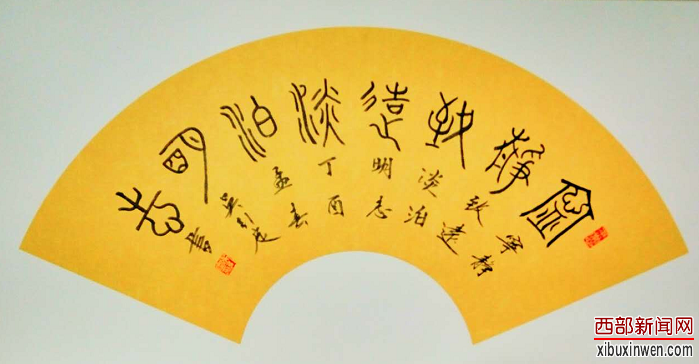 寧靜致遠淡泊明志
寧靜
致遠
淡泊
明志
丁酉
孟春
書
西部新闻网
xibuxinwen.com